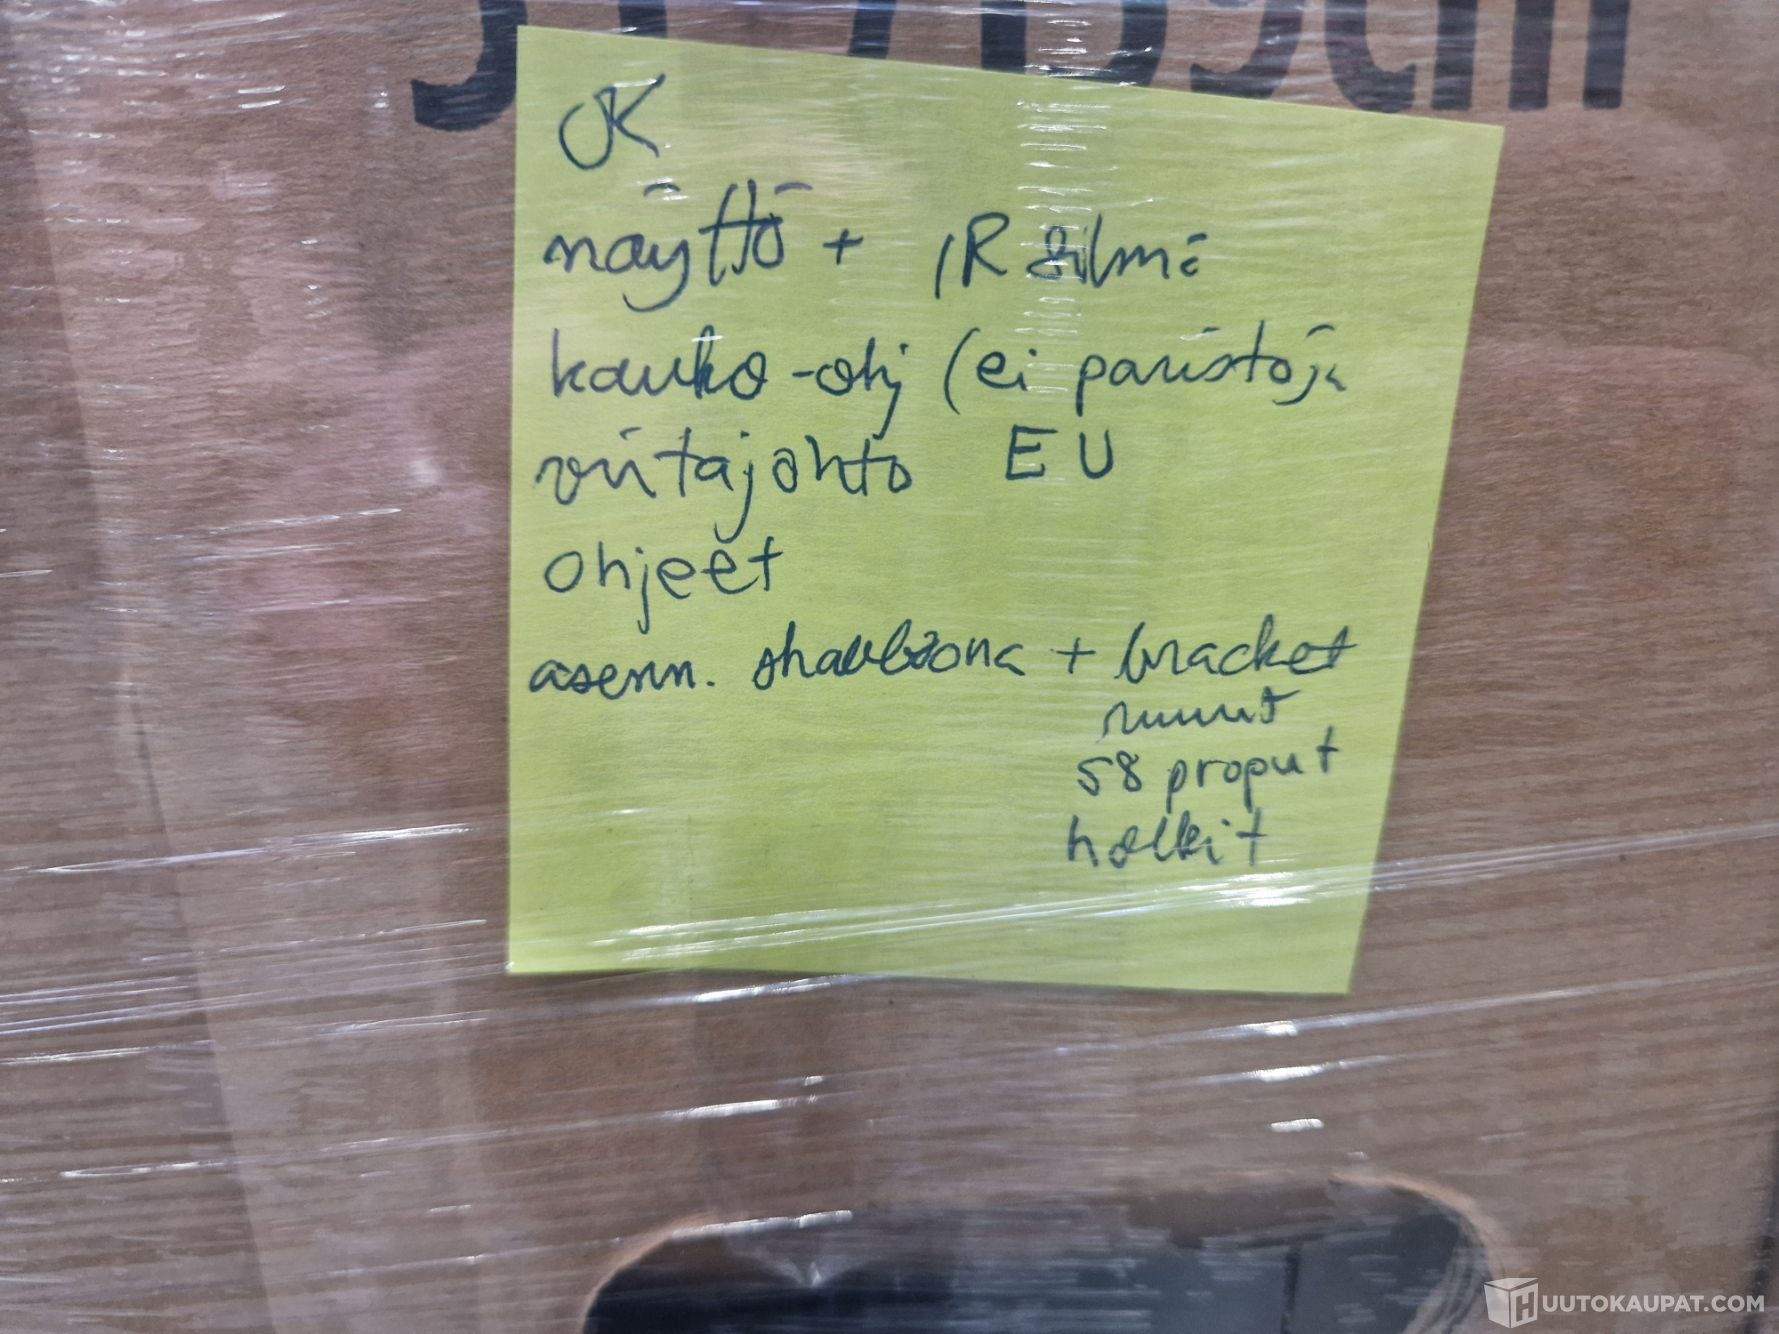 OK
näyttö + IR silmä
kauko-ohj (ei paristoja
virtajohto EU
ohjeet
asenn. shabloona + bracket
ruuvit
58 proput
holkit
HUUTOKAUPAT.COM